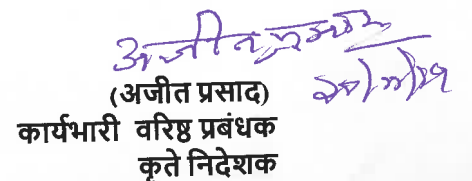 अजीत प्रसाद
(अजीत प्रसाद)
कार्यभारी वरिष्ठ प्रबंधक
कृते निदेशक